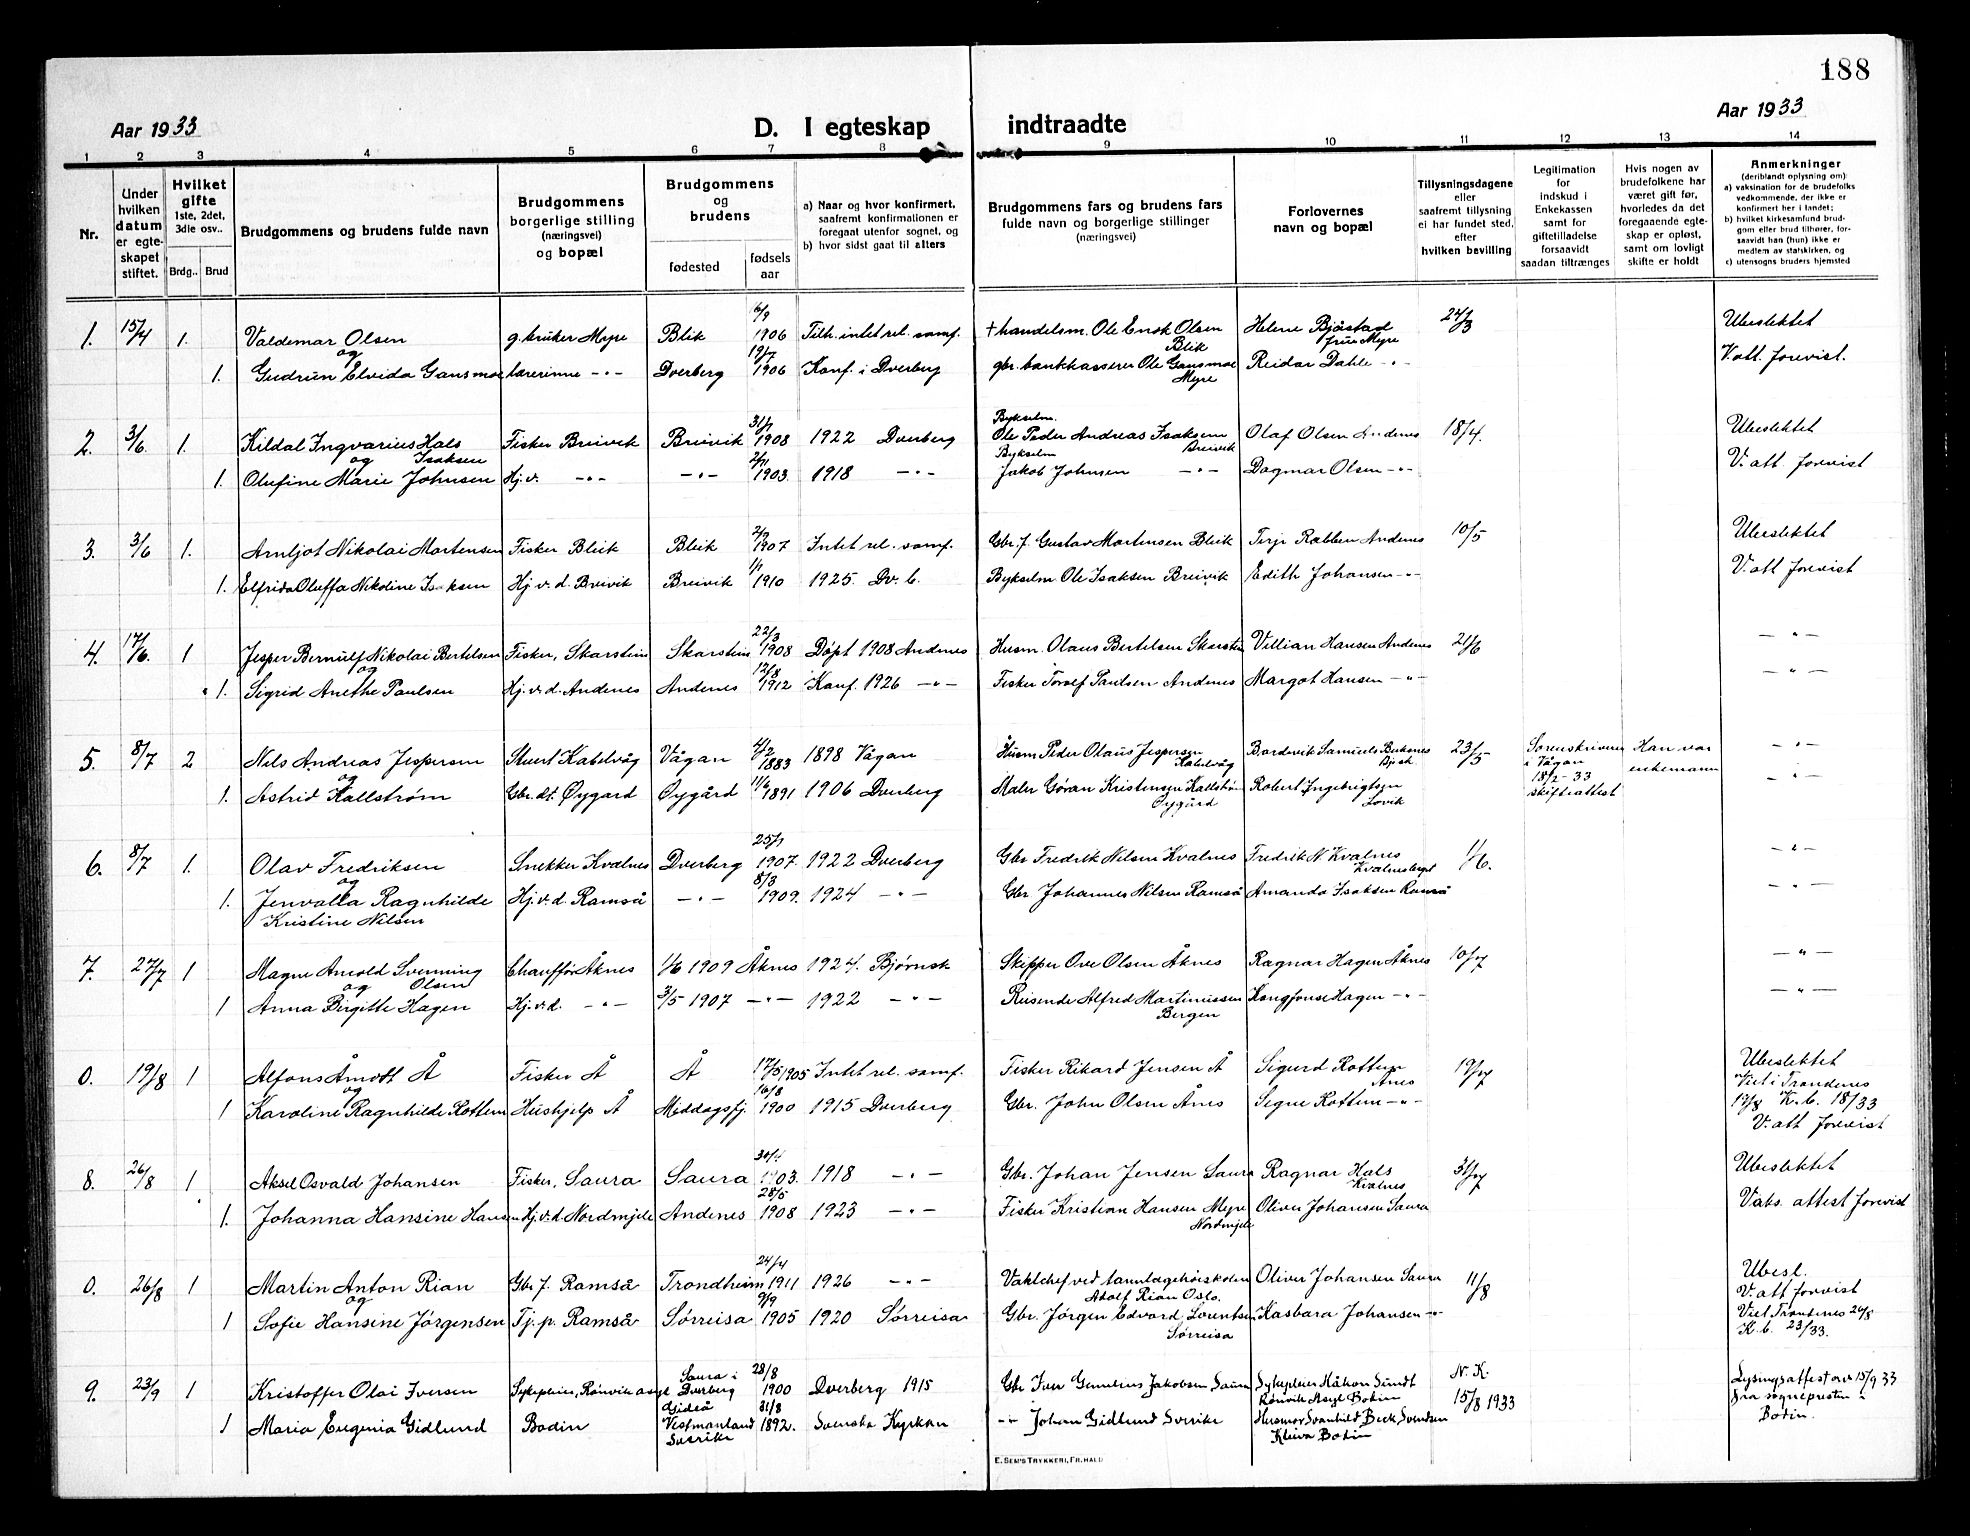 188
Aar 1933 D. I egteskap indtraadte Aar 1933
1 2 3 4 5 6 7 8 9 10 11 12 13 14
Nr.
Under hvilken datum er egteskapet stiftet.
Hvilket gifte 1ste, 2det, 3die osv..
Brdg.. Brud
Brudgommens og brudens fulde navn
Brudgommens borgerlige stilling (næringsvei) og bopæl
Brudgommens og brudens
fødested fødsels aar
a) Naar og hvor konfirmert, saafremt konfirmationen er foregaat utenfor sognet, og
b) hvor sidst gaat til alters
Brudgommens fars og brudens fars fulde navn og borgerlige stillinger (næringsvei)
Forlovernes navn og bopæl
Tillysningsdagene eller saafremt tillysning ei har fundet sted, efter hvilken bevilling
Legitimation for indskud i Enkekassen samt for giftetilladelse forsaavidt saadan tiltrænges
Hvis nogen av brudefolkene har været gift før, hvorledes da det foregaaende egteskap er opløst, samt om lovligt skifte er holdt
Anmerkninger
(deriblandt oplysning om):
a) vaksination for de brudefolks vedkommende, der ikke er konfirmert her i landet;
b) hvilket kirkesamfund brudgom eller brud tilhører, forsaavidt han (hun) ikke er medlem av statskirken, og
c) utensogns bruders hjemsted
1. 15/4 1. Valdemar Olsen g.bruker Myre Bleik 6/9 1906 Tilh. intet rel. samf. + handelsm. Ole Enok Olsen Bleik Helene Bjåstad frue Myre 24/3 Ubeslektet
og
1. Gudrun Elvida Gansmoe lærerinne -"- Dverberg 19/7 1906 Konf. i Dverberg gbr. bankkasserer Ole Gansmoe Myre Reidar Dahle -"- V.att. forevist.
2. 3/6 1. Kildal Ingvarius Hals Isaksen Fisker Breivik Breivik 31/7 1908 1922 Dverberg Bykselm. Ole Peder Andreas Isaksen Breivik Olaf Olsen Andenes 18/4. Ubeslektet
og
1. Olufine Marie Johnsen Hj.v. -"- -"- 1903. 1918 -"- Bykselm Jakob Johnsen -"- Dagmar Olsen -"- V. att. forevist
3. 3/6 1. Arnljot Nikolai Mortensen Fisker Bleik Bleik 1907 Intet rel. samf. Gbr.f. Gustav Mortensen Bleik Terje Robben Andenes 10/5 Ubeslektet
1. Elfrida Oluffa Nikoline Isaksen Hj.v.d. Breivik Breivik 1910 1925. Dv.b. Bykselm Ole Isaksen Breivik Edith Johansen -"- V.att forevist
4. 17/6. 1 Jesper Bernulf Nikolai Bertelsen Fisker, Skarstein Skarstein 22/3 1908 Døpt 1908 Andenes Husm. Olaus Bertelsen Skarstein Villian Hansen Andenes 21/6 -"-
og
1. Sigrid Anethe Paulsen Hj.v.d. Andenes Andenes 12/8 1912 Konf. 1926 -"- Fisker Torolf Paulsen Andenes Margot Hansen -"- -"-
5. 8/7 2 Nils Andreas Jespersen Stuert Kabelvåg Vågan 4/2 1883 1898 Vågan Husm Peder Olaus Jespersen Kabelvåg Bordevik Samuels Buksnes 23/5 Sorenskriveren i Vågan 18/2-33 skifteattest Han var enkemann -"-
og
1. Astrid Kallstrøm Gbr.dt. Øygard Øygård 11/6 1891 1906 Dverberg Maler Göran Kristensen Kallstrøm Øygård Robert Ingebrigtsen Lovik -"-
6. 8/7 1. Olav Fredriksen Snekker Kvalnes Dverberg 25/1 1907. 1922 Dverberg Gbr Fredrik Nilsen Kvalnes Fredrik N. Kvalnes 1/6. -"-
og
1. Jenvalla Ragnhilde Kristine Nilsen Hj.v.d. Ramså -"- 8/3 1909. 1924 -"- Gbr Johannes Nilsen Ramså Amanda Isaksen Ramså -"-
7. 27/7 1 Magne Arnold Svenning Olsen Chauffør Åknes 1/6 1909 Åknes 1924. Bjørnsk. Skipper Ove Olsen Åknes Ragnar Hagen Åknes 10/7 -"-
og
1 Anna Birgitte Hagen Hj.v.d. -"- 3/5 1907 -"- 1922 -"- Reisende Alfred Martinussen Bergen Hagen -"- -"-
0. 19/8 1 Alfons Arnott Å Fisker Å Å 17/5 1905 Intet rel. samf. Fisker Rikard Jensen Å Sigurd Rottem Ånes 19/7 Ubeslektet
og
1 Karoline Ragnhilde Rottem Hushjelp Å Middagsfj. 16/8 1900 1915 Dverberg Gbr. John Olsen Ånes Signe Rottem -"- Viet i Trondenes 19/8 K.b. 18/33 V.att forevist
8. 26/8 1 Aksel Osvald Johansen Fisker, Saura Saura 1903. 1918 -"- Gbr. Johan Jensen Saura Ragnar Hals Kvalnes 31/7 Ubeslektet
1. Johanna Hansine Hansen Hj.v.d Nordmjele Andenes 28/5 1908 1923 -"- Fisker Kristian Hansen Myre Nordmjele Oliver Johansen Saura Vaks. attest forevist
0. 26/8 1 Martin Anton Rian Gbr f. Ramså Trondheim 24/4 1911 1926 -"- Vaktchef ved tannlægehøiskolen Adolf Rian Oslo. Oliver Johansen Saura 11/8 Ubesl. V.att forevist
og
1 Sofie Hansine Jörgensen Tj.p. Ramså Sørreisa 9/9 1905 1920 Sørreisa Gbr. Jörgen Edvard Lorentsen Sørreisa Kasbara Johansen -"- Viet Trondenes 26/8 K.b. 23/33.
9. 23/9 1 Kristoffer Olai Iversen Sykepleier, Rønvik asyl Saura i Dverberg 28/8 1900 Dverberg 1915 Gbr Iver Jakobsen Saura Sykepleier Håkon Sundt Rønvik Asyl Bodin N.K. 15/8 1933 Lysningsattest av 15/9 33 fra sognepresten i Bodin.
1 Maria Eugenia Gidlund Bodin Gideå Vestmanland Sverike 31/8 1892. Svenska Kyrkan -"- Johan Gidlund Sverike Husmor Svanhild Beck Svendsen Kleiva Bodin
E. SEM'S TRYKKERI, FR.HALD